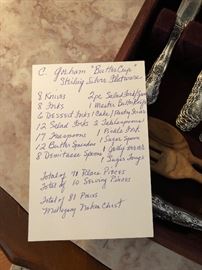 C. Gorham "ButterCup"
Sterling Silver Flatware
8 Knives 2 pc Salad Fork/Spoon
8 Forks 1 Master Butter Knife
6 Dessert Forks 1 Cake/Pastry Server
12 Salad Forks 2 Tablespoons
17 Teaspoons 1 Pickle Fork
12 Butter Spreaders 1 Sugar Spoon
8 Demitasse Spoons 1 Jelly Server
1 Sugar Tongs
Total of 70 Place Pieces
Total of 10 Serving Pieces
Total of 81 Pieces
Mahogany Chest